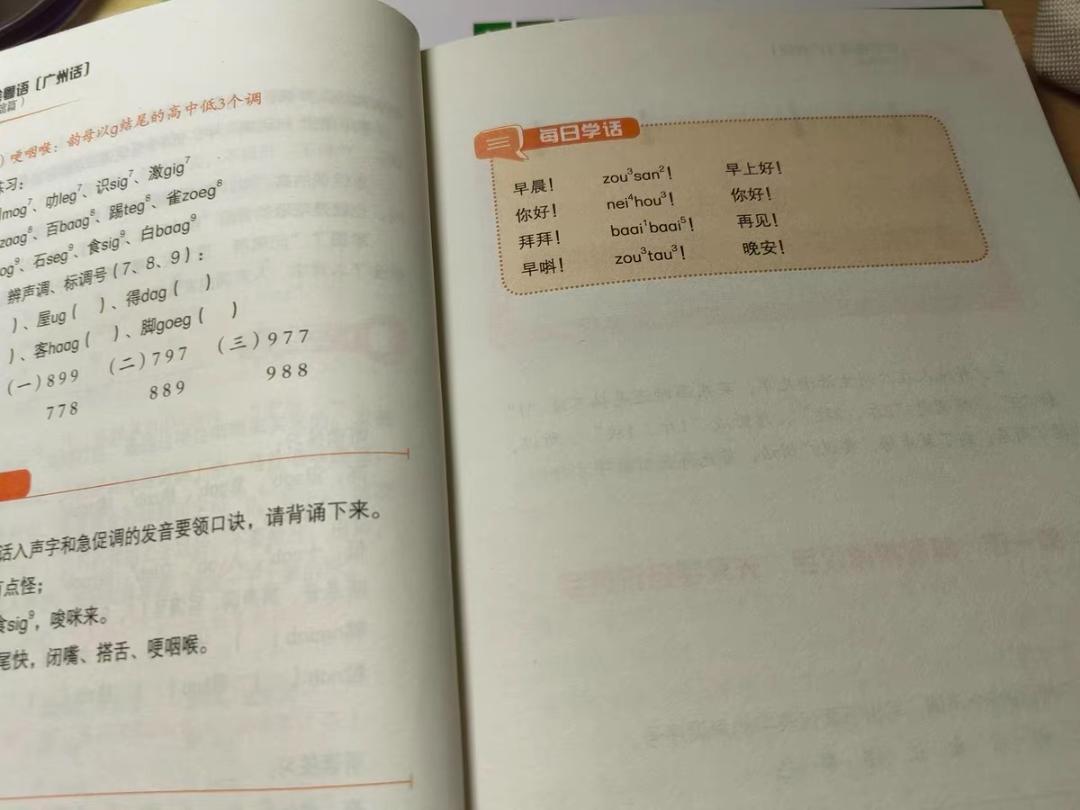 粤语［广州话］
哽咽喉：韵母以g结尾的高中低3个调
练习：
mog⁷、叻leg⁷、识sig⁷、激gig⁷
zaag⁸、百baag⁸、踢teg⁸、雀zoeg⁸
og⁹、石seg⁹、食sig⁹、白baag⁹
辨声调、标调号（7、8、9）：
）、屋ug（ ）、得dag（ ）
）、客haag（ ）、脚goeg（ ）
（一）899 （二）797 （三）977
778 889 988
话入声字和急促调的发音要领口诀，请背诵下来。
有点怪；
食sig⁹，唆咪来。
尾快，闭嘴、搭舌、哽咽喉。
三 每日学话
早晨！ zou³san²！ 早上好！
你好！ nei⁴hou³！ 你好！
拜拜！ baai¹baai⁵！ 再见！
早唞！ zou³tau³！ 晚安！